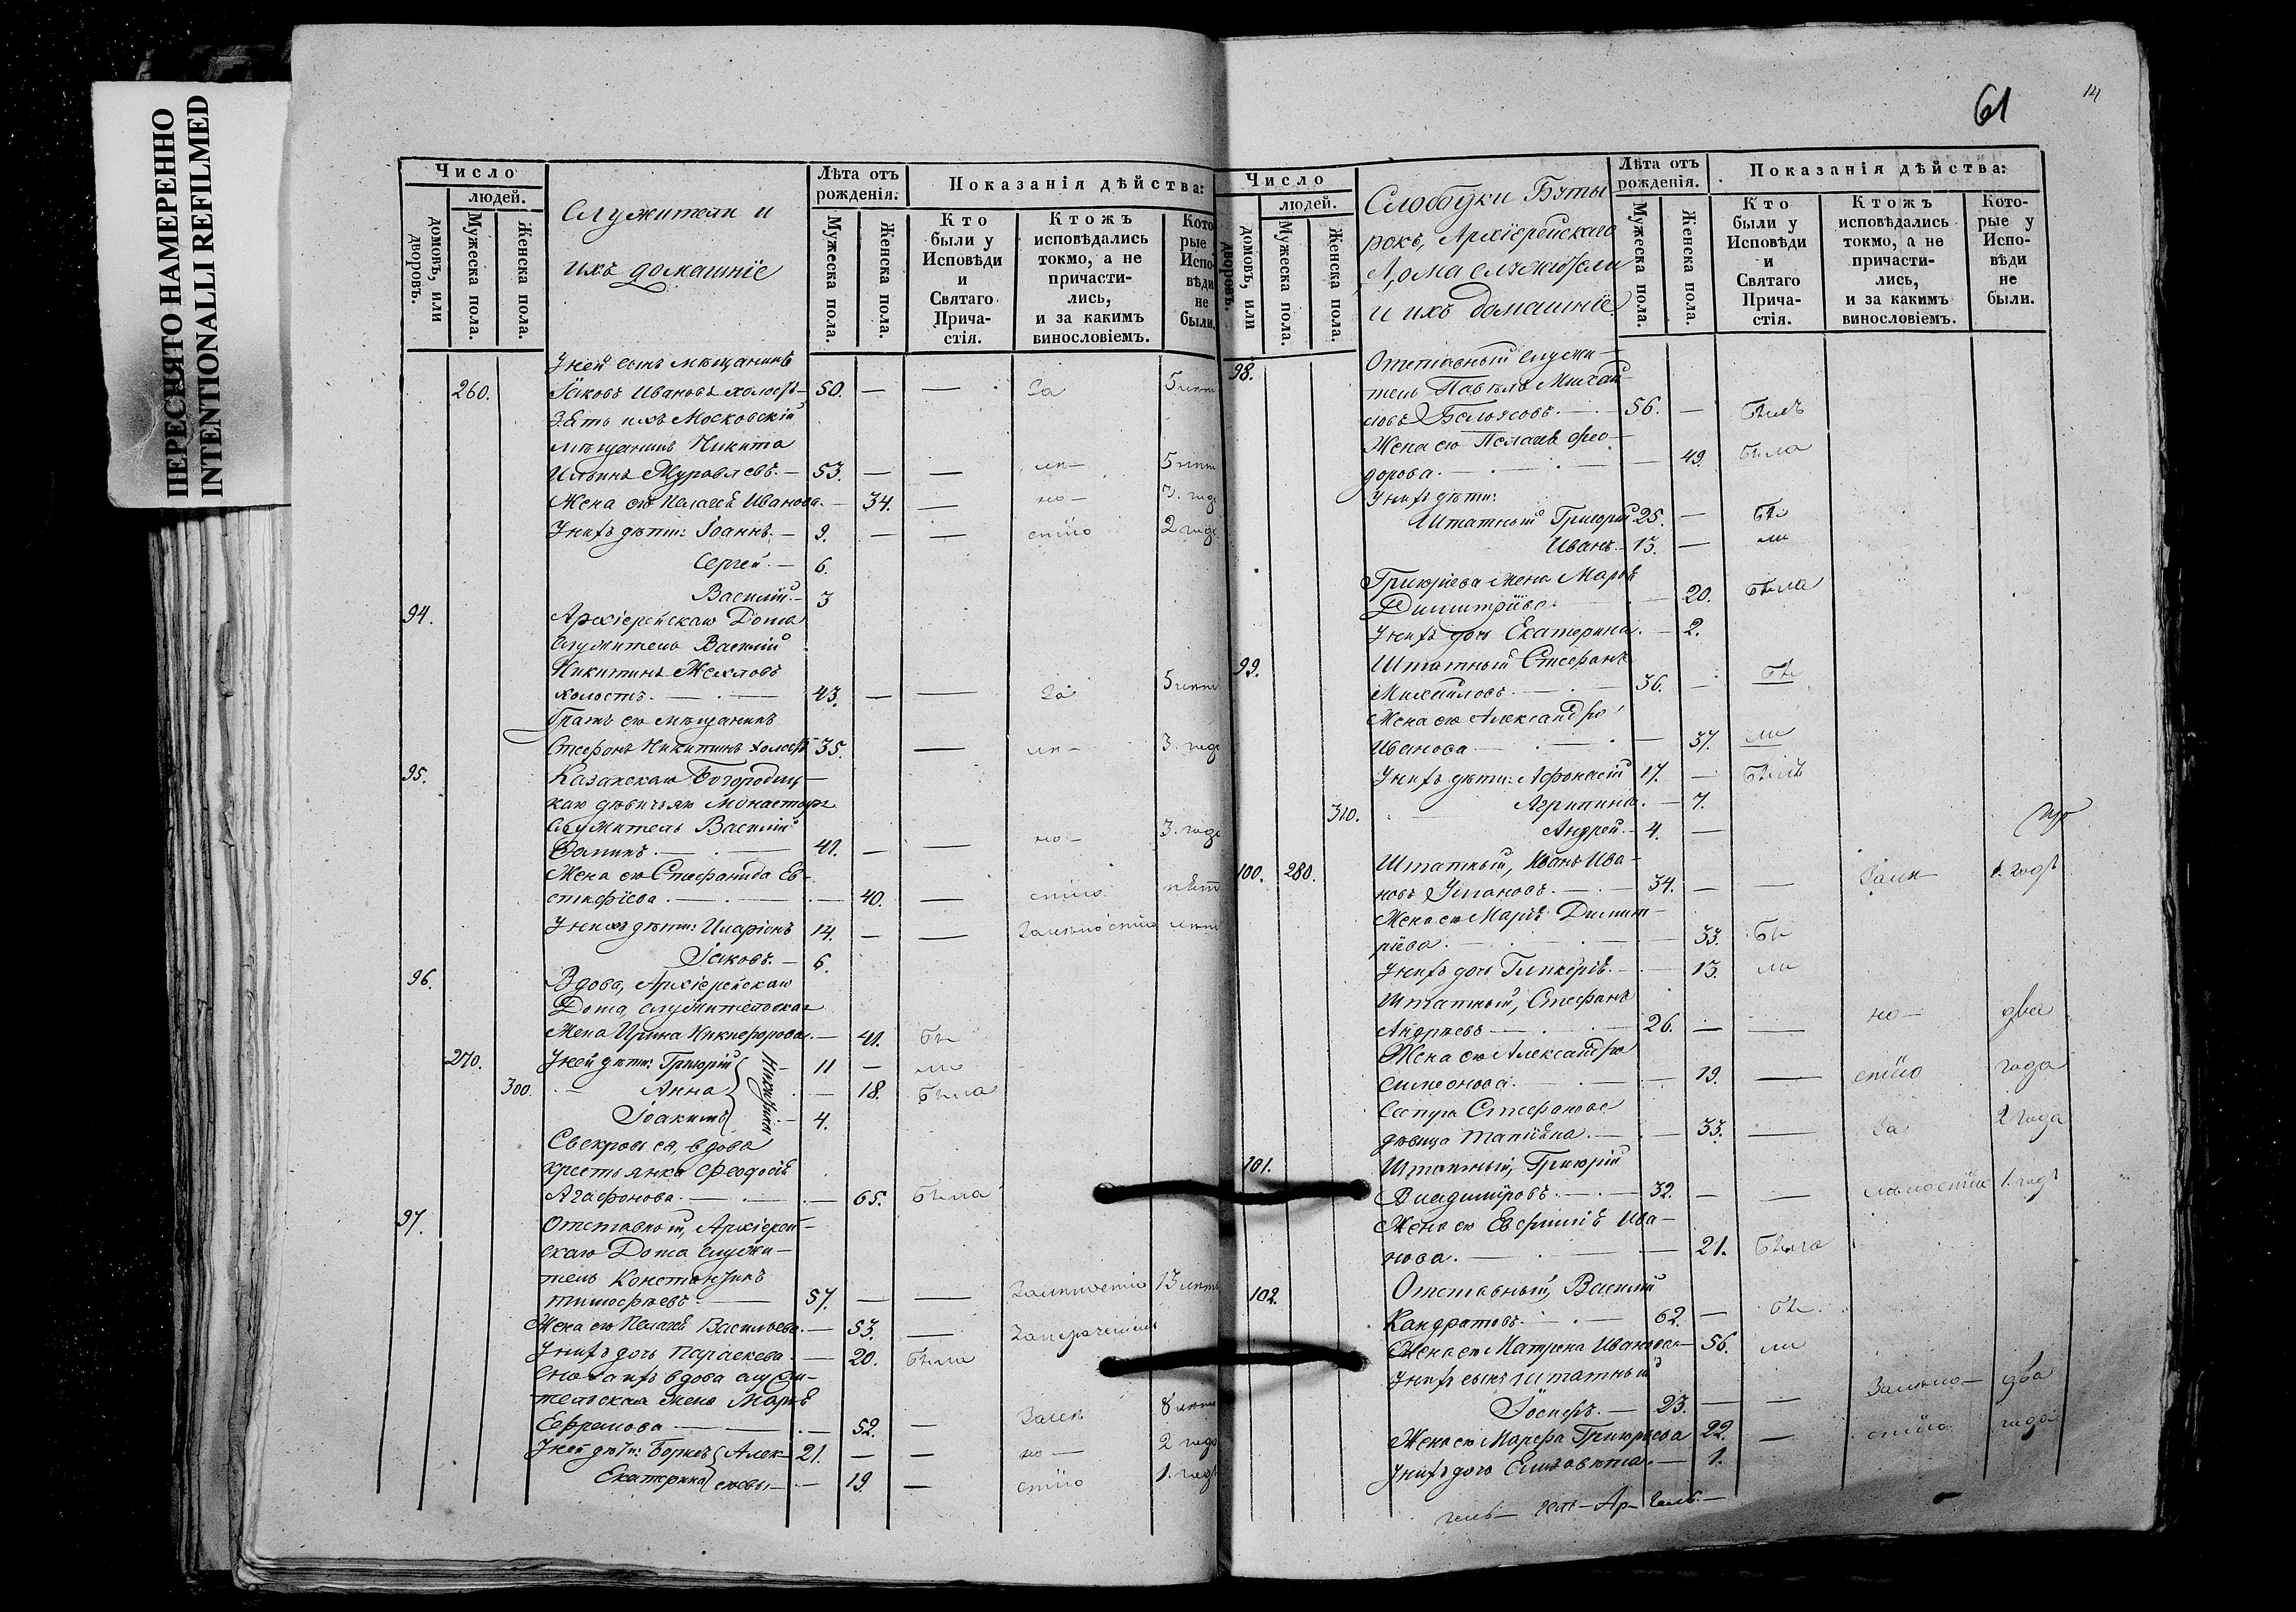 ПЕРЕСНЯТО НАМЕРЕННО
INTENTIONALLI REFILMED
Число
людей.
домовъ, или дворовъ.
Мужеска пола.
Женска пола.
Служители и
ихъ домашніе
Лѣта отъ рожденія.
Мужеска пола.
Женска пола.
Показанія дѣйства:
Кто были у Исповѣди и Святаго Прича-стія.
Ктожъ исповѣдались токмо, а не причасти-лись, и за какимъ винословіемъ.
Кото рые Испо вѣди не были.
У ней сынъ мѣщанинъ
260. Іаковъ Ивановъ холостъ — 50. — — За 5 лѣт
Зять ихъ Московскій
мѣщанинъ Никита
Ильинъ Журавлевъ. — 53. — — лѣ — 5 лѣт
Жена его Пелагея Иванова. — 34. — но — 3. года
У нихъ дѣти: Іоаннъ. — 9. — — стію 2 года
Сергей. — 6.
Василій. — 3
94. Архіерейскаго Дома
служитель Василій
Никитинъ
холостъ. — 43. — — За 5 лѣт
Братъ его мѣщанинъ
Стефанъ Никитинъ холостъ 35. — лѣ — 3. года
95. Казанскаго Богородиц —
каго дѣвичьяго Монастыря
служитель Василій
41. — — но — 3. года
Жена его Стефанида Ев —
стафіева. — 40. — стію
У нихъ дѣти: Иларіонъ 14. — — За лѣностію лѣт
Іаковъ. — 6.
96. Вдова, Архіерейскаго
Дома, служительская
Жена Ирина Никифорова. — 41. бы
270. У ней дѣти: Григорій — 11 — ли
300. Анна — 18. была
Іоакимъ — 4.
Никитины
Свекровь ея, вдова
крестьянка Феодосія
Агафонова. — 65. была
97. Отставный, Архіерей —
скаго Дома служи —
тель Константинъ
Тимофеевъ — 57. — — За лѣностію 13 лѣтъ
Жена его Пелагея Васильева. — 53. —
У нихъ дочь Параскева. — 20. была
Сноха ихъ вдова служи —
тельская жена Марья
Ефремова — 52. — За лѣ 8 лѣт
У ней дѣти: Борисъ Алек — 21. — — но — 2 года
Екатерина сѣевы — 19. — стію 1. годъ
61
14
Число
людей.
домовъ, или дворовъ.
Мужеска пола.
Женска пола.
Слободки Буты
рокъ, Архіерейскаго
Дома служители
и ихъ домашніе
Лѣта отъ рожденія.
Мужеска пола.
Женска пола.
Показанія дѣйства:
Кто были у Исповѣди и Святаго Прича-стія.
Ктожъ исповѣдались токмо, а не причасти-лись, и за какимъ винословіемъ.
Кото-рые у Испо-вѣди не были.
98. Отставный служи —
тель Павелъ Михай
ловъ Белоусовъ. — 56. — былъ
Жена его Пелагея Фео —
дорова. — 49. была
У нихъ дѣти:
Штатный Григорій 25. — бы
Иванъ. — 13. — ли
Григорьева жена Марья
Димитріева. — 20. была
У нихъ дочь Екатерина. — 2.
99. Штатный Стефанъ
Михайловъ. — 36. — бы
Жена его Александра
Иванова — 37. ли
У нихъ дѣти: Афонасій 17. — былъ
310. Агрипина. — 7.
Андрей. — 4. —
100. 280. Штатный, Иванъ Ива —
новъ — 34. — — За лѣ — 1. годъ
Жена его Марья Димит —
ріева. — 33. бы
У нихъ дочь Гликерія. — 13. ли
Штатный, Стефанъ
Андреевъ — 26. — — но — два
Жена его Александра
Симеонова. — 19. — стію года
Сестра Стефанова
дѣвица Татіяна. — 33. — За 2 года
101. Штатный, Григорій
Владимировъ. — 32. — — лѣностію 1. годъ
Жена его Евфимія Ива —
нова. — 21. была
102. Отставный, Василій
Кандратовъ. — 62. — бы
Жена его Матрена Иванова — 56. ли
У нихъ сынъ штатный
Іосифъ. — 23. — — За лѣно — два
Жена его Марфа Григорьева 22. — стію года
У нихъ дочь Елизавета. — 1.